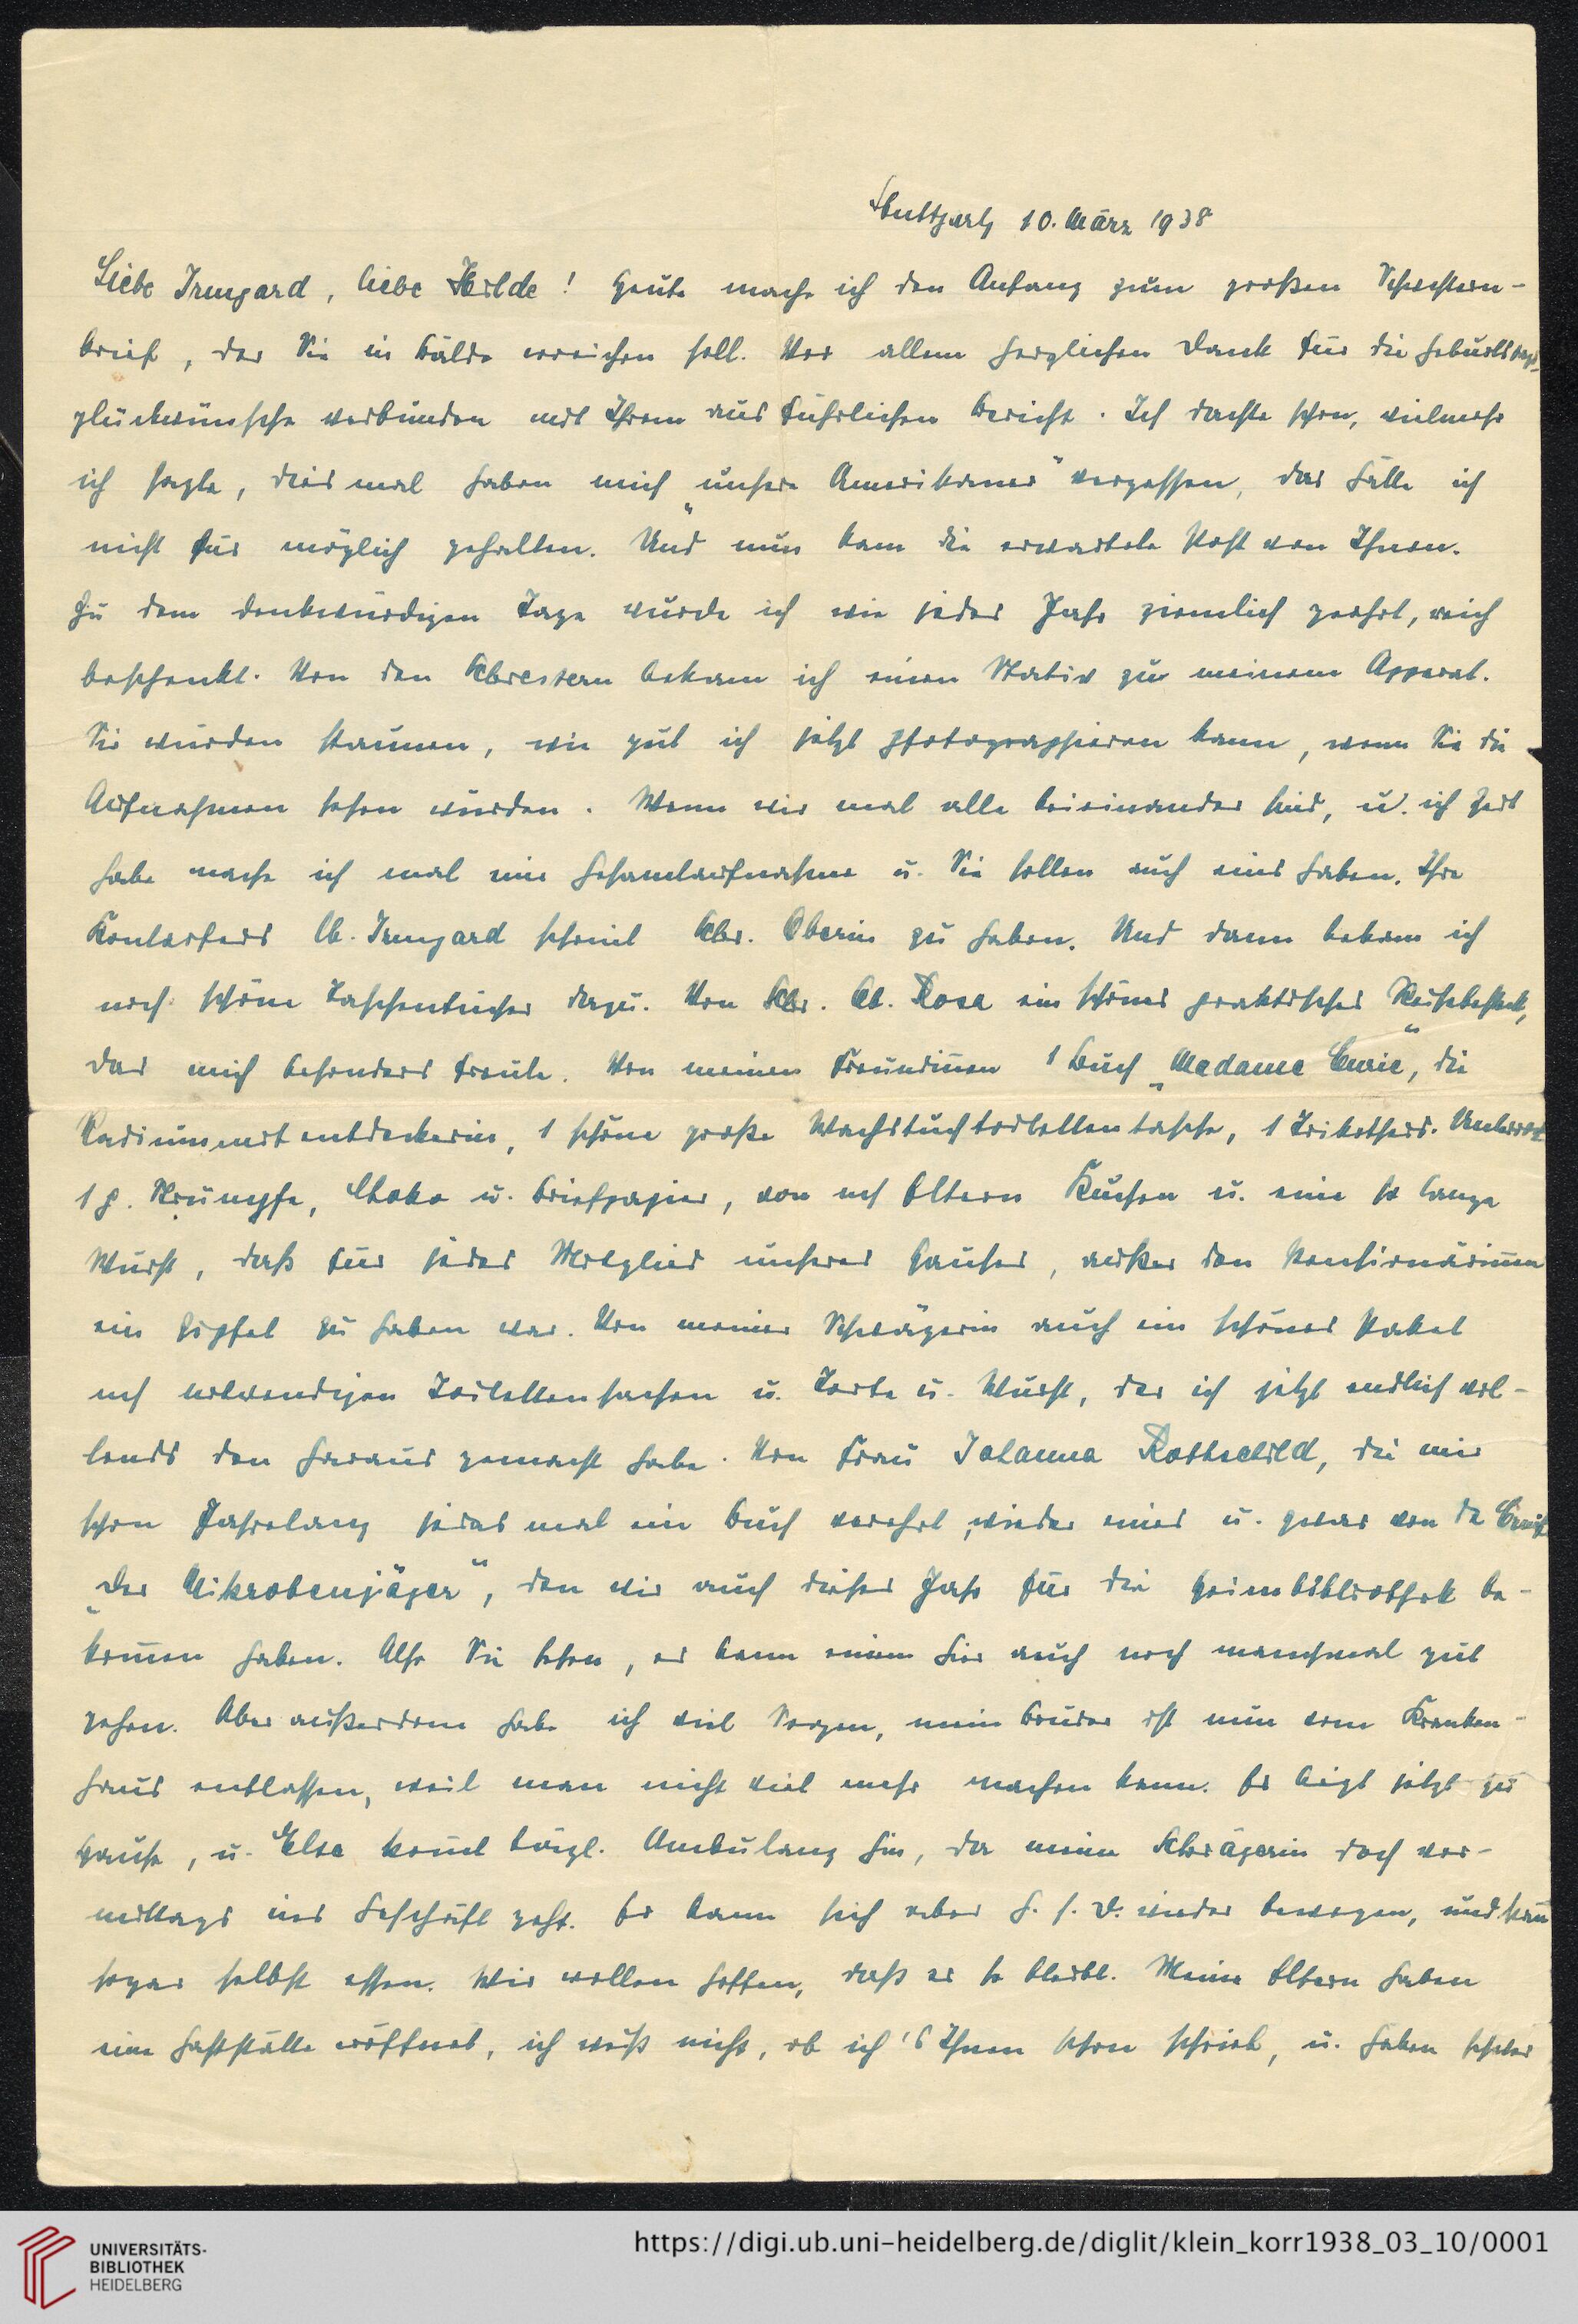 Stuttgart, 10. März 1938
Liebe Irmgard, liebe Hilde! Heute mache ich den Anfang zum großen Schwestern-
brief, der Sie in Bälde erreichen soll. Vor allem herzlichen Dank für die Geburtstags-
glückwünsche verbunden mit Ihrem ausführlichen Bericht. Ich dachte schon, vielmehr
ich sagte, dies mal haben mich „unsere Amerikaner" vergessen, das hätte ich
nicht für möglich gehalten. Und nun kam die erwartete Post von Ihnen.
Zu dem denkwürdigen Tage wurde ich wie jedes Jahr ziemlich geehrt, reich
beschenkt. Von den Schwestern bekam ich einen Stativ zu meinem Apparat.
Sie würden staunen, wie gut ich jetzt photographieren kann, wenn Sie die
Aufnahmen sehen würden. Wenn wir mal alle beieinander sind, u. ich Zeit
habe mache ich mal eine Gesamtaufnahme u. Sie sollen auch eins haben. Ihre
Konterfeis lb. Irmgard scheint Schw. Oberin zu haben. Und dann bekam ich
noch schöne Taschentücher dazu. Von Schw. Rosa ein schönes praktisches Reisebesteck,
das mich besonders freute. Von meinen Freundinnen 1 Buch „Madame Curie", die
Radiummitentdeckerin, 1 schöne große Wachstuchtoilettentasche, 1 Trikotseid. Unterrock
1 P. Strümpfe, Choko u. Briefpapier, von m/ Eltern Kuchen u. eine so lange
Wurst, daß für jedes Mitglied unseres Hauses, außer den Pensionärinnen
ein Zipfel zu haben war. Von meiner Schwägerin auch ein schönes Paket
m/ notwendigen Toilettensachen u. Torte u. Wurst, der ich jetzt endlich vol-
lends den Garaus gemacht habe. Von Frau Johanna Rothschild, die mir
schon Jahrelang jedes mal ein Buch verehrt, wieder eines u. zwar von de Cruif
„Der Mikrobenjäger", den wir auch dieses Jahr für die Heimbibliothek be-
kommen haben. Also Sie sehen, es kann einem hier auch noch manchmal gut
gehen. Aber außerdem habe ich viel Sorgen, mein Bruder ist nun vom Kranken-
haus entlassen, weil man nicht viel mehr machen kann. Er liegt jetzt zu
Hause, u. Else kommt tägl. Ambulanz hin, da meine Schwägerin doch vor-
mittags ins Geschäft geht. Er kann sich aber G. s. D. wieder bewegen, und kann
sogar selbst essen. Wir wollen hoffen, daß es so bleibt. Meine Eltern haben
eine Gaststätte eröffnet, ich weiß nicht, ob ich's Ihnen schon schrieb, u. haben schwer
UNIVERSITÄTS-
BIBLIOTHEK
HEIDELBERG
https://digi.ub.uni-heidelberg.de/diglit/klein_korr1938_03_10/0001